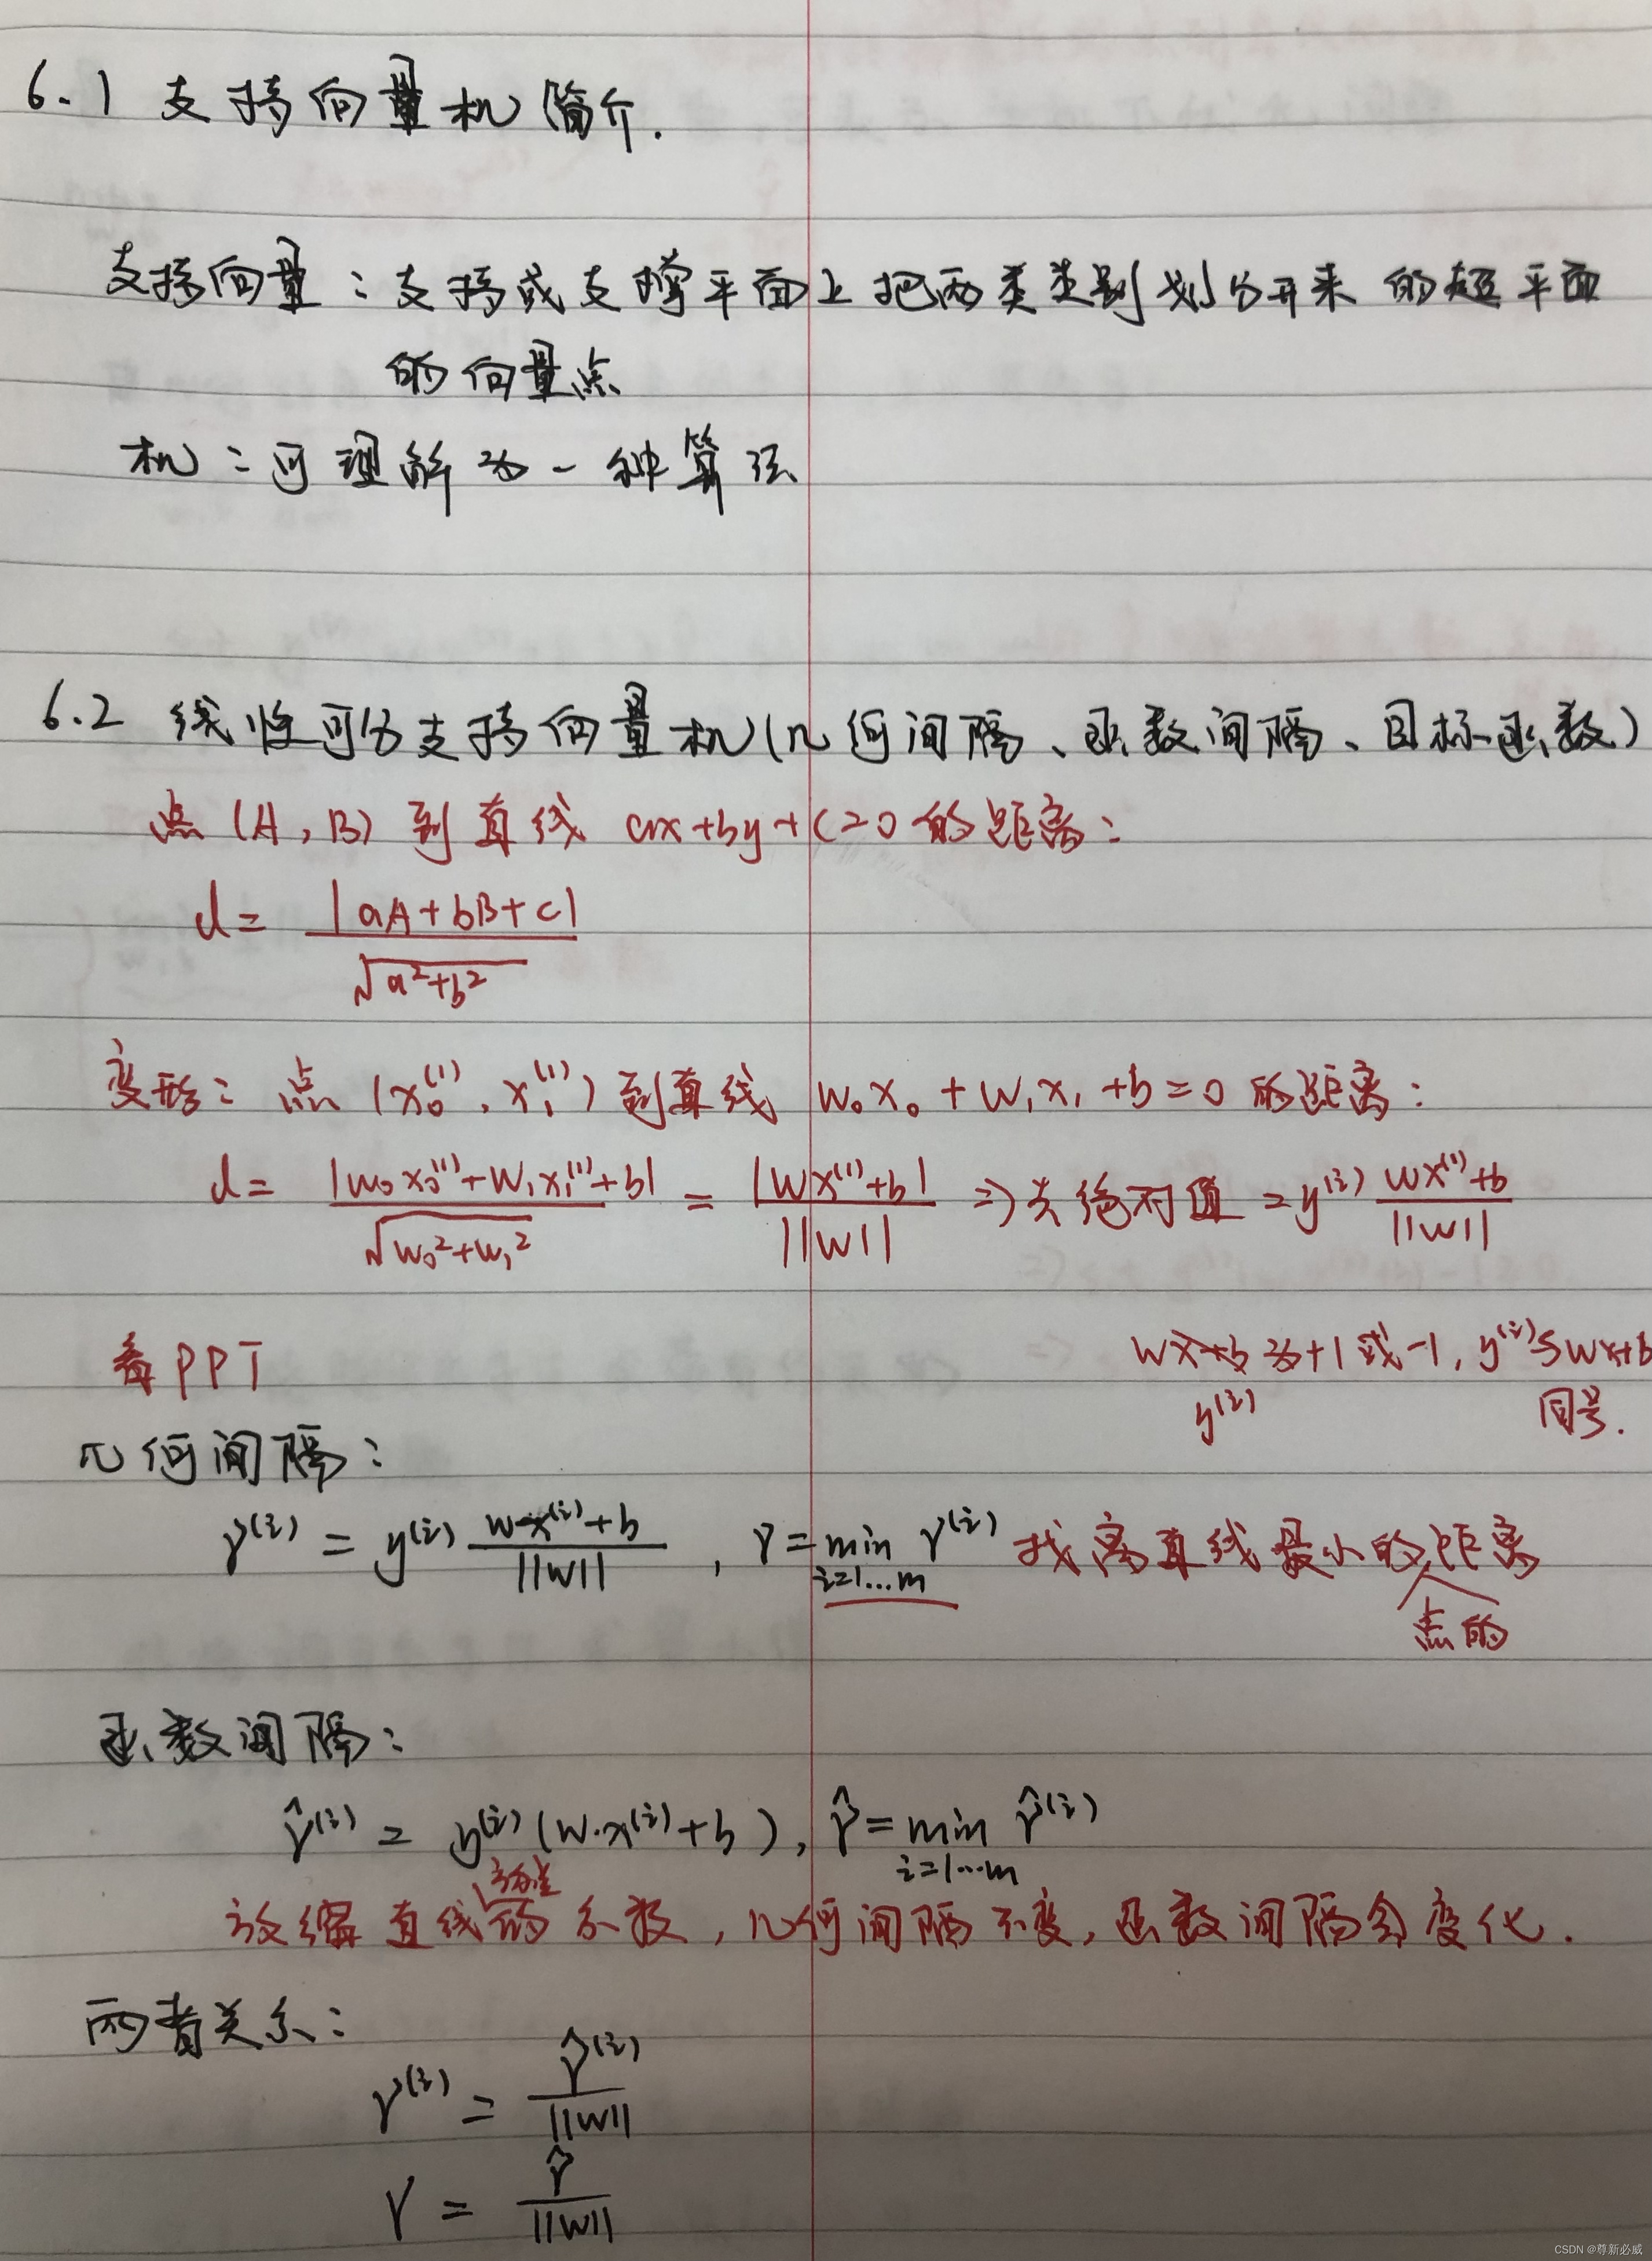 6.1 支持向量机简介.
支持向量:支持或支撑平面上把两类类别划分开来的超平面
的向量点
机:可理解为一种算法
6.2 线性可分支持向量机(几何间隔、函数间隔、目标函数)
点(A,B)到直线 ax+by+c=0的距离:
d= |aA+bB+c| / √(a²+b²)
变形:点(x₀⁽¹⁾, x₁⁽¹⁾)到直线 w₀x₀+w₁x₁+b=0的距离:
d= |w₀x₀⁽¹⁾+w₁x₁⁽¹⁾+b| / √(w₀²+w₁²) = |wx⁽¹⁾+b| / ||w|| ⇒去绝对值 =y⁽ⁱ⁾ (wx⁽¹⁾+b) / ||w||
看PPT
wx+b为+1或-1, y⁽ⁱ⁾与wx+b
y⁽ⁱ⁾ 同号.
几何间隔:
γ⁽ⁱ⁾ = y⁽ⁱ⁾ (w·x⁽ⁱ⁾+b) / ||w|| , γ= min γ⁽ⁱ⁾ 找离直线最小的点的距离
i=1...m
函数间隔:
γ̂⁽ⁱ⁾ = y⁽ⁱ⁾(w·x⁽ⁱ⁾+b), γ̂= min γ̂⁽ⁱ⁾
i=1...m
放缩直线的系数,几何间隔不变,函数间隔会变化.
两者关系:
γ⁽ⁱ⁾ = γ̂⁽ⁱ⁾ / ||w||
γ = γ̂ / ||w||
CSDN @尊新必威